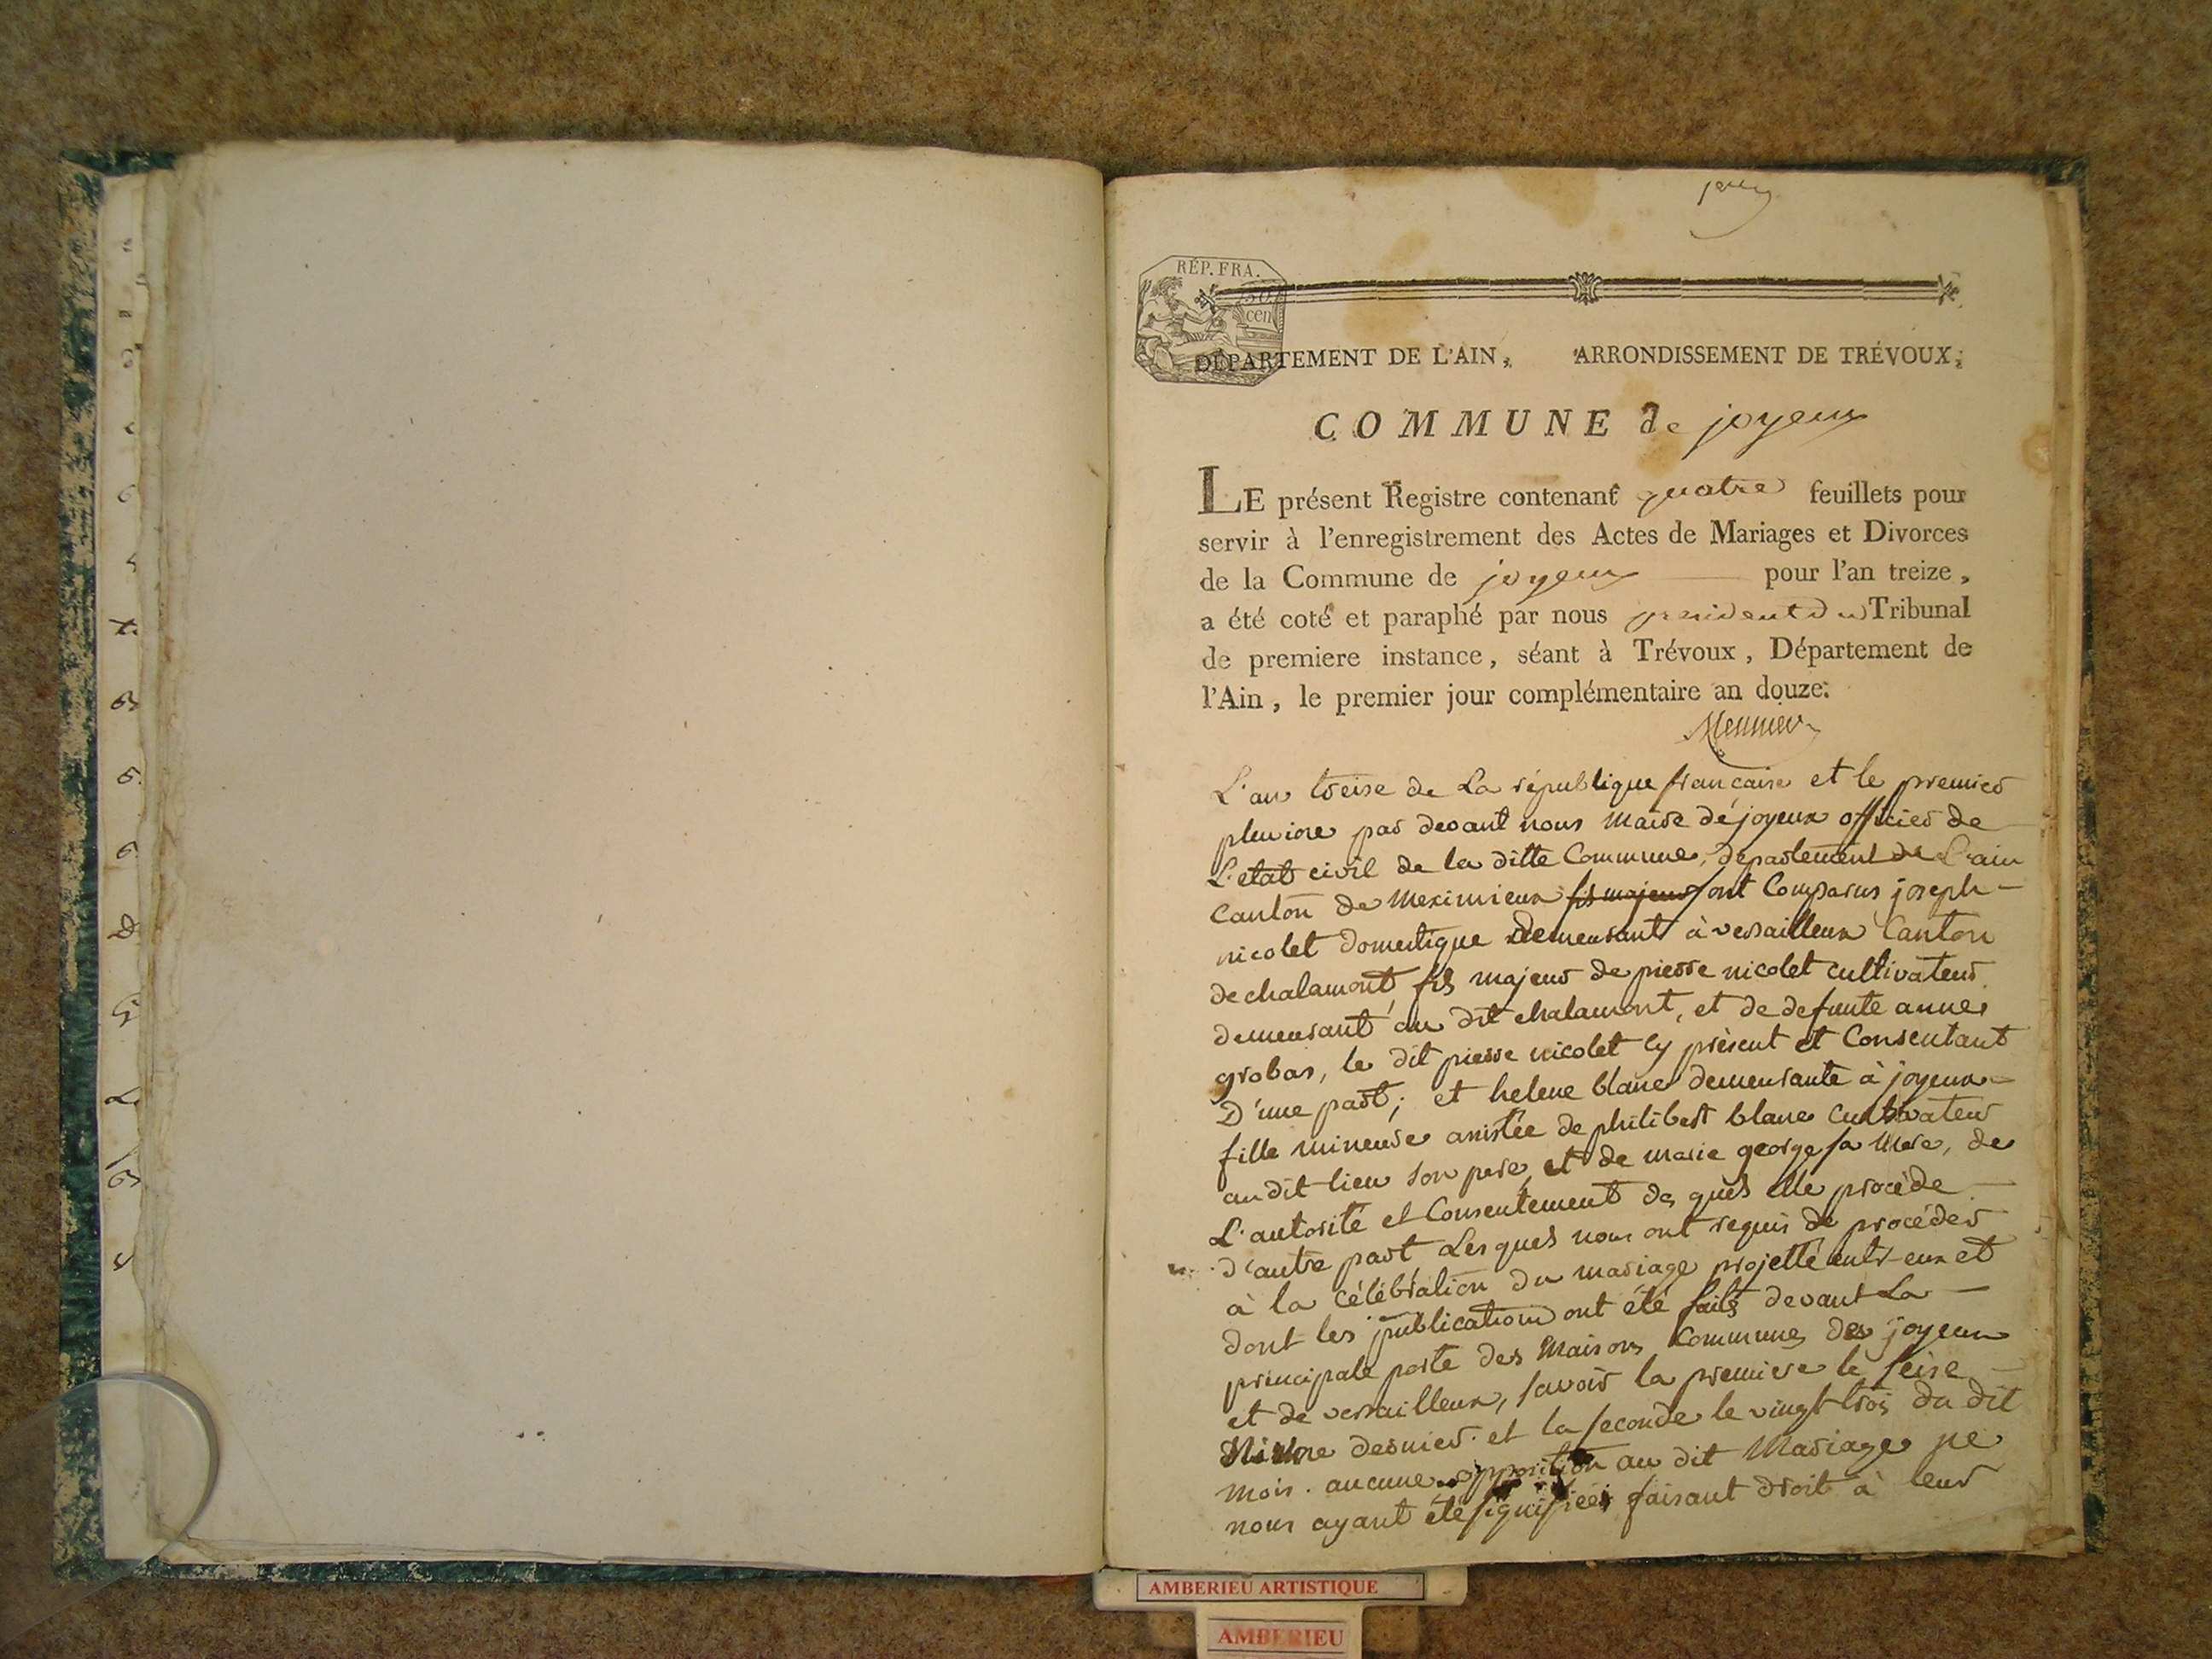 RÉP. FRA.
50
cen
DÉPARTEMENT DE L'AIN, ARRONDISSEMENT DE TRÉVOUX,
COMMUNE de joyeux
LE présent Registre contenant quatre feuillets pour
servir à l'enregistrement des Actes de Mariages et Divorces
de la Commune de joyeux pour l'an treize,
a été coté et paraphé par nous president du Tribunal
de premiere instance, séant à Trévoux, Département de
l'Ain, le premier jour complémentaire an douze.
L'an treise de La république française et le premier
pluviose par devant nous maire de joyeux officier de
L'etat civil de la ditte Commune, departement de L'ain
Canton de Meximieux fils majeur sont Comparus joseph
nicolet domestique Demeurant à versailleux Canton
de chalamont, fils majeur de pierre nicolet cultivateur
demeurant au dit chalamont, et de defunte anne
grobas, le dit pierre nicolet Cy présent et Consentant
D'une part; et helene blanc demeurante à joyeux
fille mineure assistée de philibert blanc Cultivateur
au dit lieu son pere, et de marie george sa Mere, de
L'autorité et Consentement des quels elle procède
d'autre part Lesquels nous ont requis de procéder
à la célébration du mariage projetté entr-eux et
dont les publications ont été faits devant La
principale porte des Maisons Communes de joyeux
et de versailleux, savoir la premiere le seise
Nivôse dernier et la seconde le vingt trois du dit
mois. aucune opposition au dit Mariage ne
nous ayant été signifiée, faisant droit à leur
AMBERIEU ARTISTIQUE
AMBERIEU